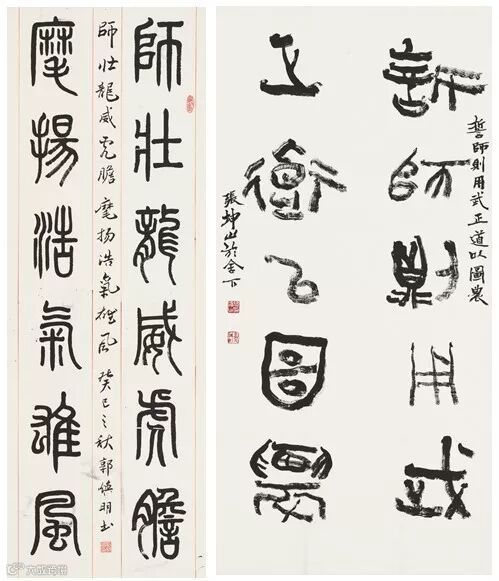 師壯龍威虎膽
師壯龍威虎膽麾扬浩氣雄风癸巳之秋郭焕明书
麾揚浩氣雄風
誓師則用武正道以圖農
誓師則用武
正道以圖農
張坤山於舍下